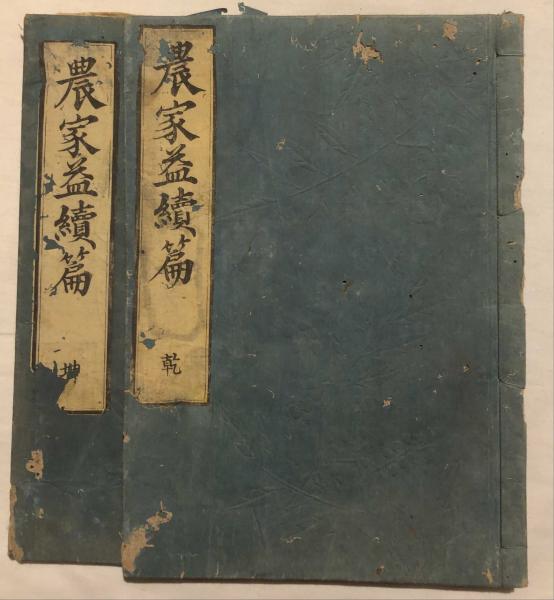 農家益續篇
乾
農家益續篇
坤